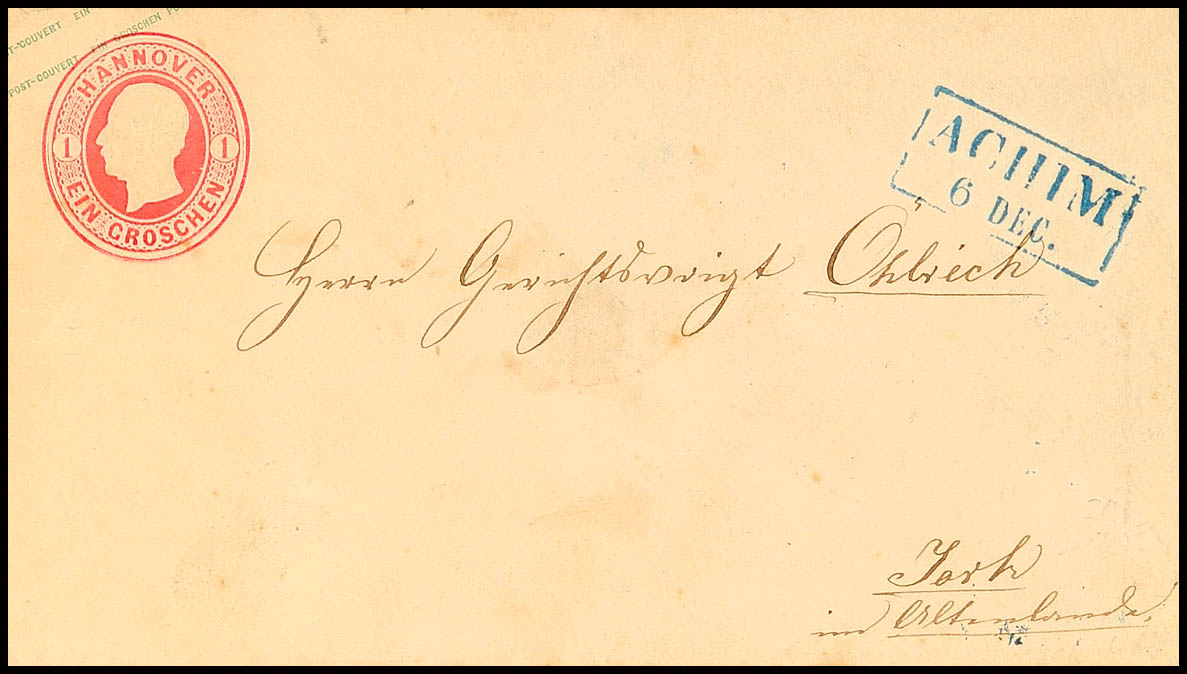 POST-COUVERT EIN
POST-COUVERT EIN GROSCHEN
HANNOVER
1 1
EIN GROSCHEN
ACHIM
6 DEC.
Herrn Gerichtsvoigt Öhlrich
Jork
im Altenlande.